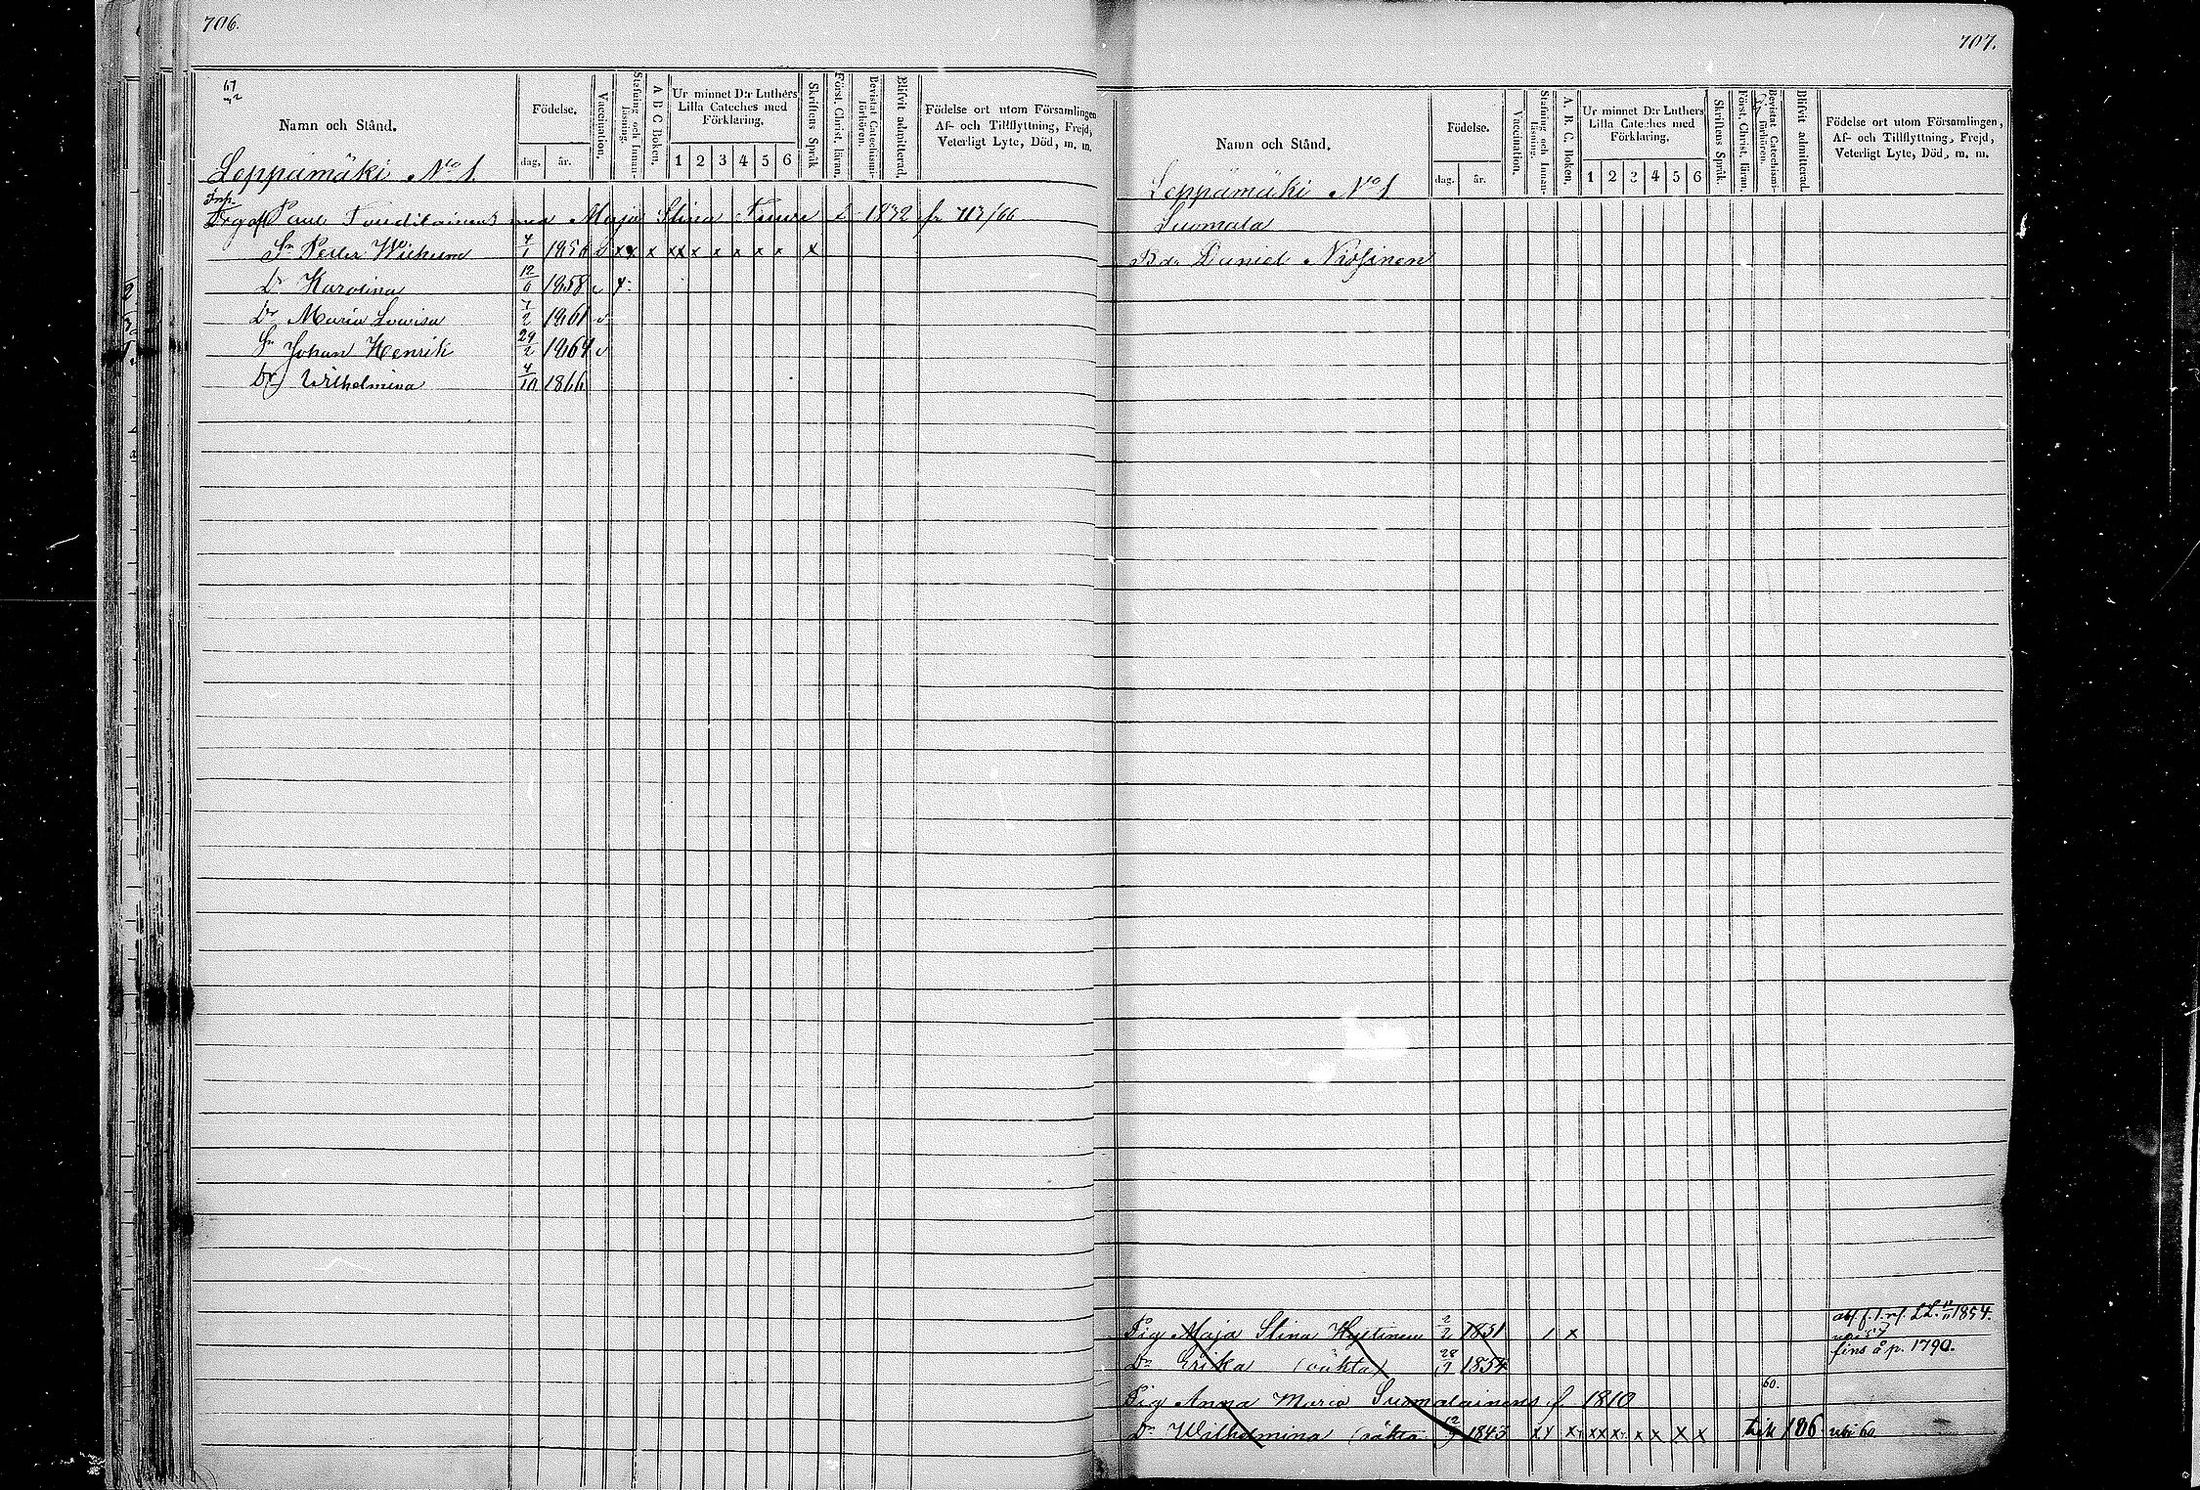 706.
67
Namn och Stånd.
Födelse.
dag, år.
Vaccination.
Stafning och Innan-läsning.
A B C Boken.
Ur minnet D:r Luthers Lilla Cateches med Förklaring.
1 2 3 4 5 6
Skriftens Språk
Först. Christ. läran.
Bevistat Catechismi-förhören.
Blifvit admitterad.
Födelse ort utom Församlingen
Af- och Tillflyttning, Frejd,
Veterligt Lyte, Död, m. m.
Leppämäki No 1.
Inh.
Paul Tauditainens Maja Stina 1832 fr 713/66
Sn Petter Wilhelm 4/1 1856 v x x x x x x x x x x x
Dr Karolina 12/6 1858 v x
Dr Maria Lowisa 7/2 1861 v
Sn Johan Henrik 29/2 1864 v
Dr Wilhelmina 4/10 1866
707.
Namn och Stånd.
Födelse.
dag. år.
Vaccination.
Stafning och Innan-läsning.
A. B. C. Boken.
Ur minnet D:r Luthers Lilla Cateches med Förklaring.
1 2 3 4 5 6
Skriftens Språk.
Först. Christ. läran.
Bevistat Catechismi-förhören.
Blifvit admitterad.
Födelse ort utom Församlingen,
Af- och Tillflyttning, Frejd,
Veterligt Lyte, Död, m. m.
Leppämäki No 1.
Suomala
Daniel Niösinen
1854.
Pig Maja Stina Hyttinen 2/2 1851 / x
fins å p. 1790.
Dr Erika (oäkta) 28/9 1854
60.
Pig Anna Maria Suomalainens f. 1810
Dr Wilhelmina (oäkta 12/9 1843 x x x x x x x x x x 186 60